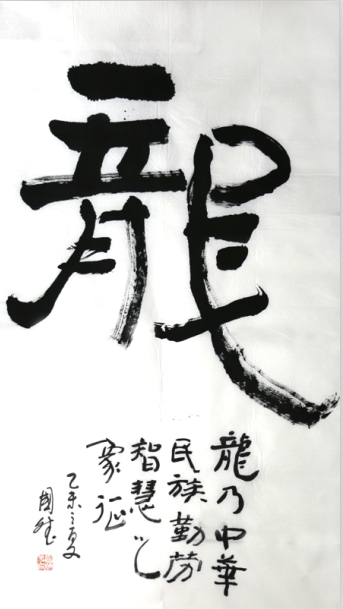 龍
龍乃中華
民族勤劳
智慧之
象征
乙未之夏